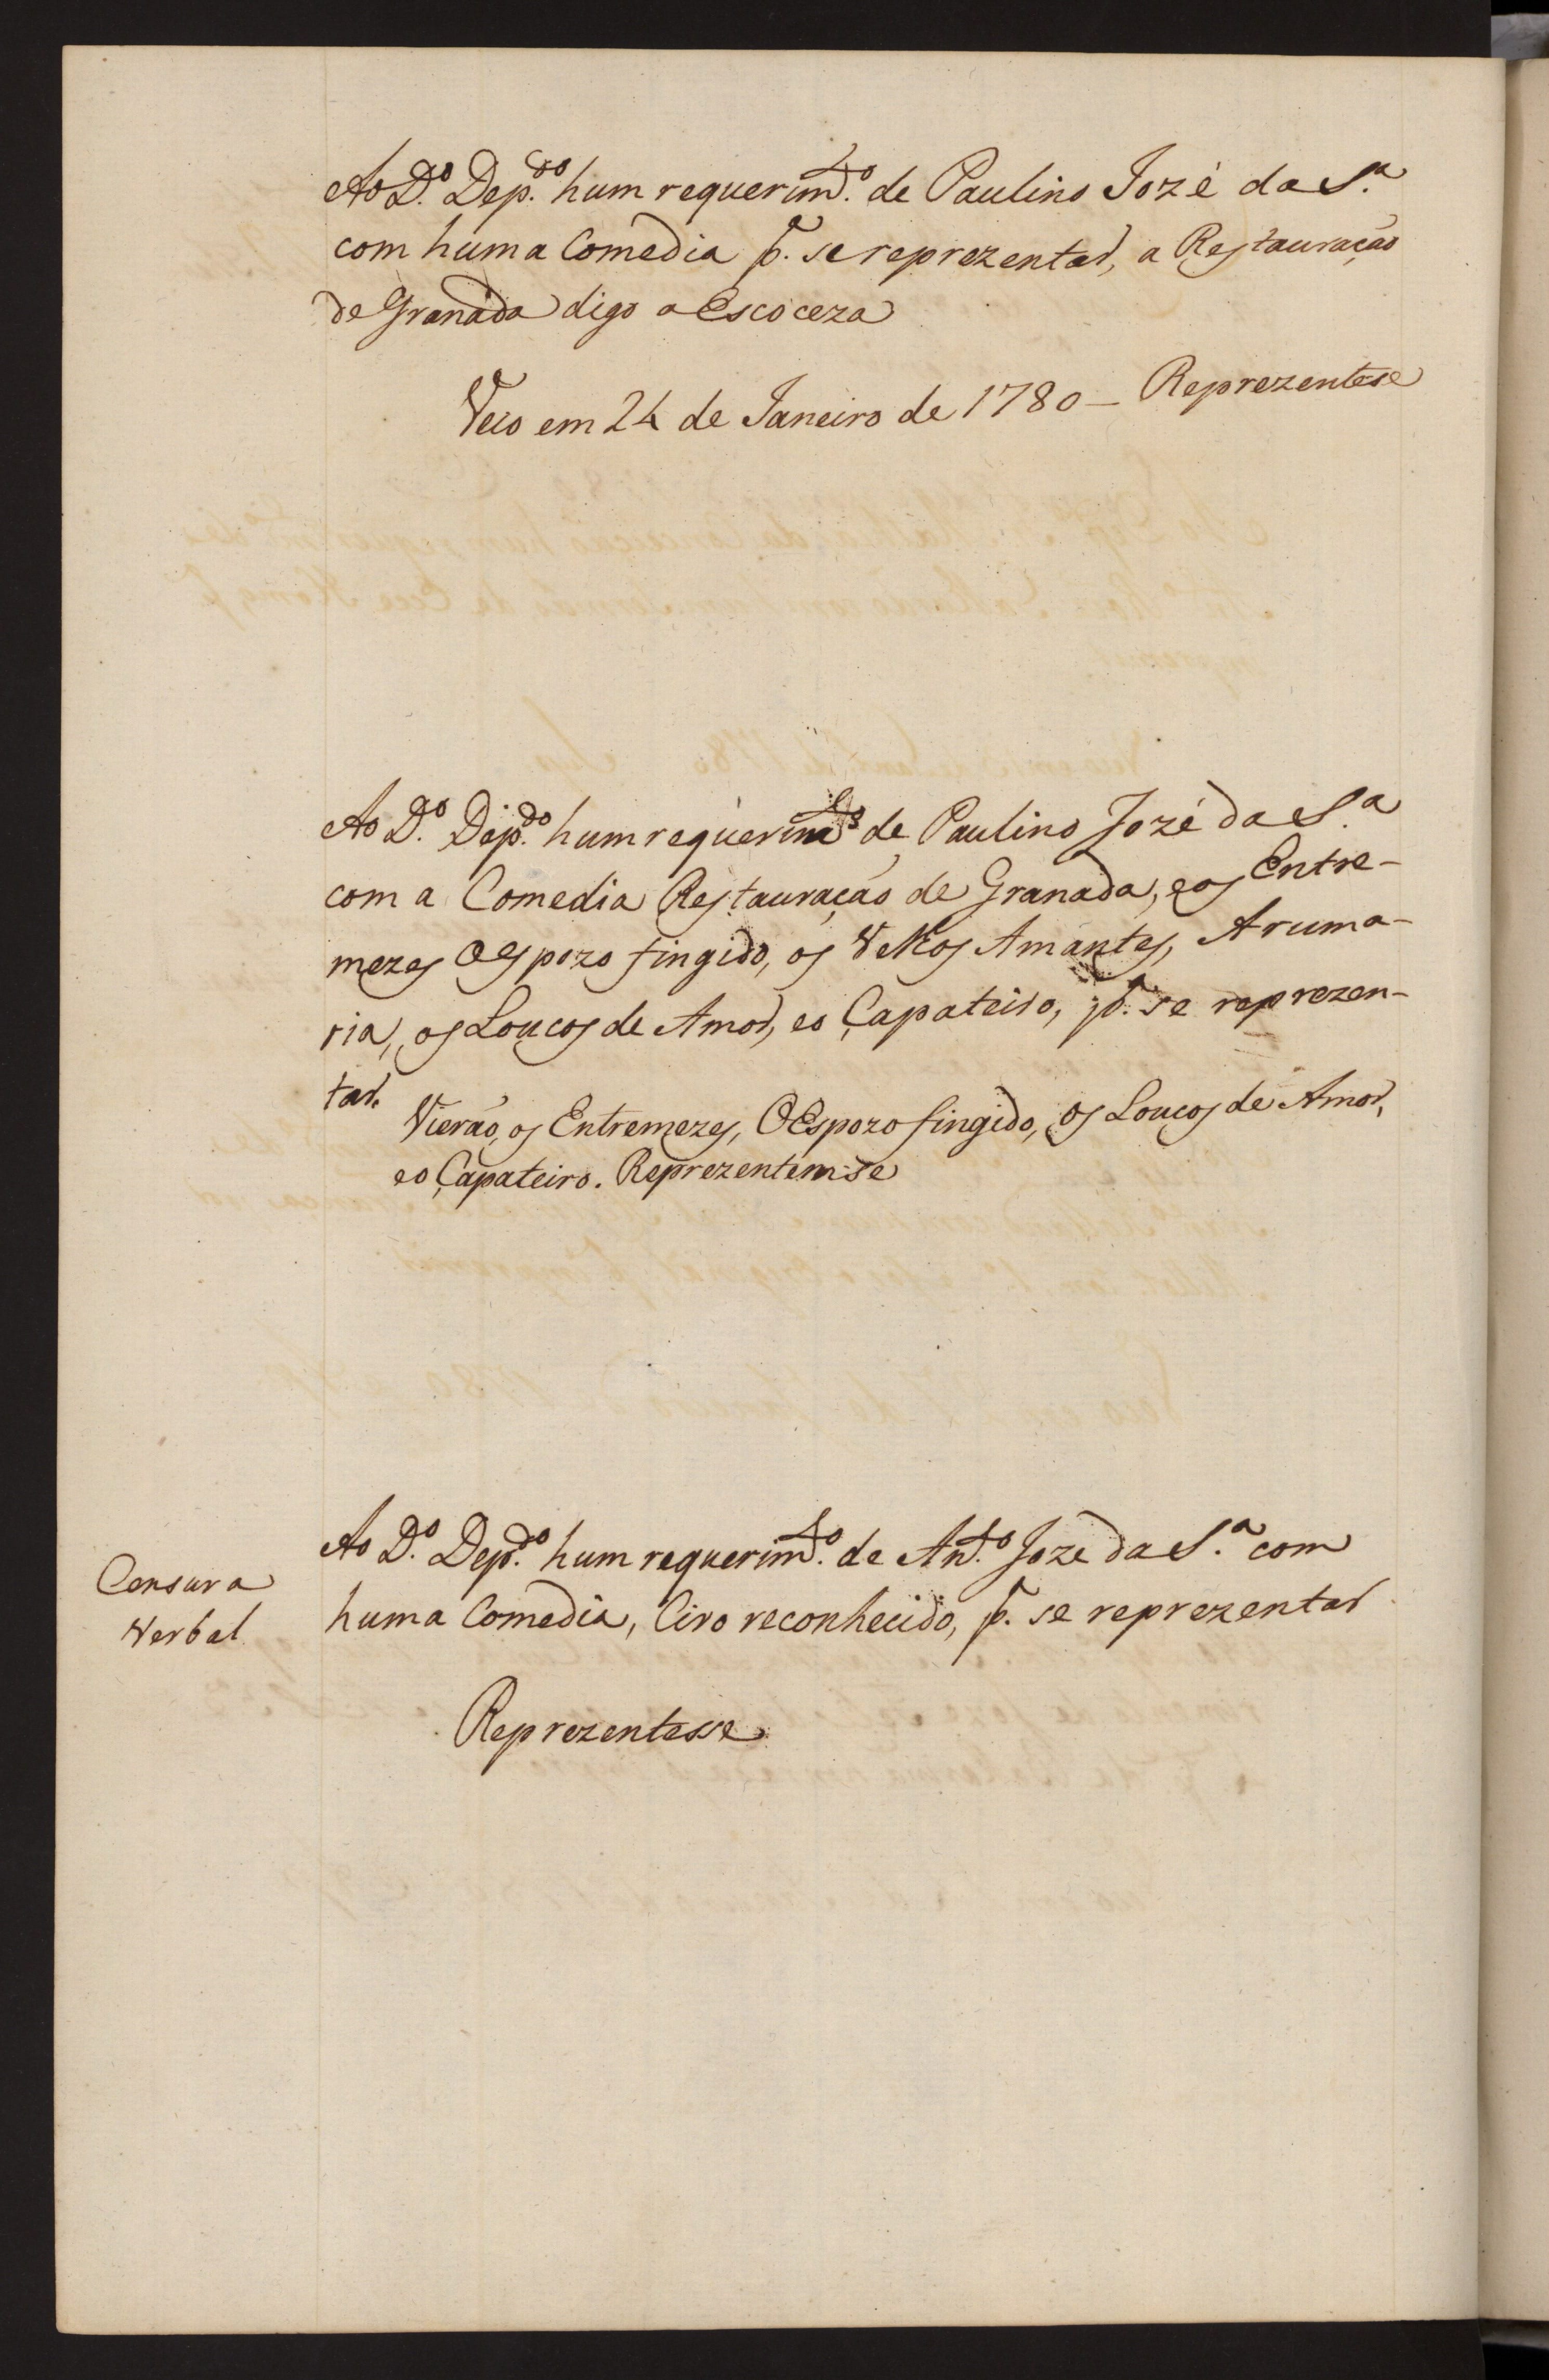 Ao D.º Dep.do hum requerim.to de Paulino Jozé da S.ª
com huma Comedia p.ª se reprezentar, a Restauração
de Granada digo a Escoceza
Veio em 24 de Janeiro de 1780 — Reprezentese
Ao D.º Dep.do hum requerim.to de Paulino Jozé da S.ª
com a Comedia Restauração de Granada, e os Entre-
mezes O Espozo fingido, os Velhos Amantes, A ruma-
ria, os Loucos de Amor, e o Çapateiro, p.ª se reprezen-
tar.
Vierão, os Entremezes, O Espozo fingido, os Loucos de Amor,
e o Çapateiro. Reprezentem-se
Censura
Verbal
Ao D.º Dep.do hum requerim.to de Ant.º Joze da S.ª com
huma Comedia, Ciro reconhecido, p.ª se reprezentar
Reprezentesse